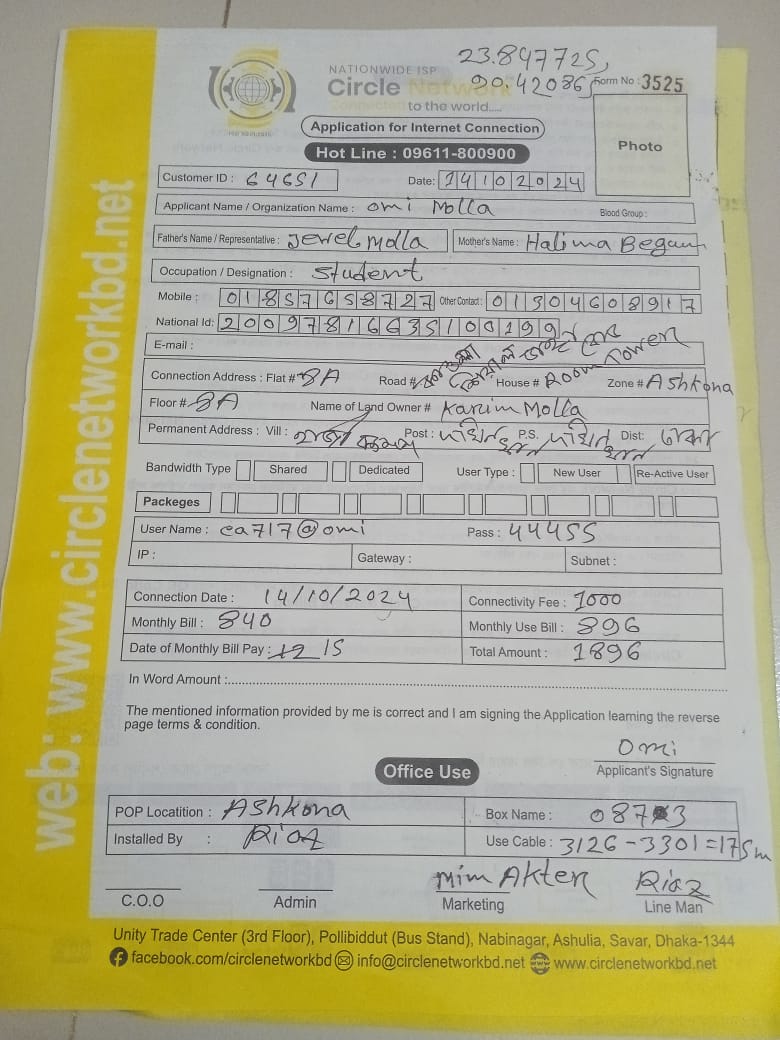 23.847725,
NATIONWIDE ISP
90.42086
Form No : 3525
Circle Network
Connected
to the world.....
Application for Internet Connection
Photo
Hot Line : 09611-800900
Customer ID : 64651 Date: 14102024
Applicant Name / Organization Name : omi Molla Blood Group :
Father's Name / Representative : Jewel molla Mother's Name : Halima Begam
Occupation / Designation : Student
Mobile : 01857658727 Other Contact : 01304608917
National Id: 20097816635100199
E-mail :
Connection Address : Flat # 8A Road # House # Room Tower Zone # Ashkona
Floor # 8A Name of Land Owner # Karim Molla
Permanent Address : Vill : Post : P.S. Dist: ঢাকা
Bandwidth Type Shared Dedicated User Type : New User Re-Active User
Packeges
User Name : ea717@omi Pass : 44455
IP : Gateway : Subnet :
Connection Date : 14/10/2024 Connectivity Fee : 1000
Monthly Bill : 840 Monthly Use Bill : 896
Date of Monthly Bill Pay : 12 15 Total Amount : 1896
In Word Amount :
The mentioned information provided by me is correct and I am signing the Application learning the reverse
page terms & condition.
Omi
Applicant's Signature
Office Use
POP Locatition : Ashkona Box Name : 087 3
Installed By : Riaz Use Cable : 3126-3301=175m
Mim Akter Riaz
C.O.O Admin Marketing Line Man
Unity Trade Center (3rd Floor), Pollibiddut (Bus Stand), Nabinagar, Ashulia, Savar, Dhaka-1344
facebook.com/circlenetworkbd info@circlenetworkbd.net www.circlenetworkbd.net
web: www.circlenetworkbd.net